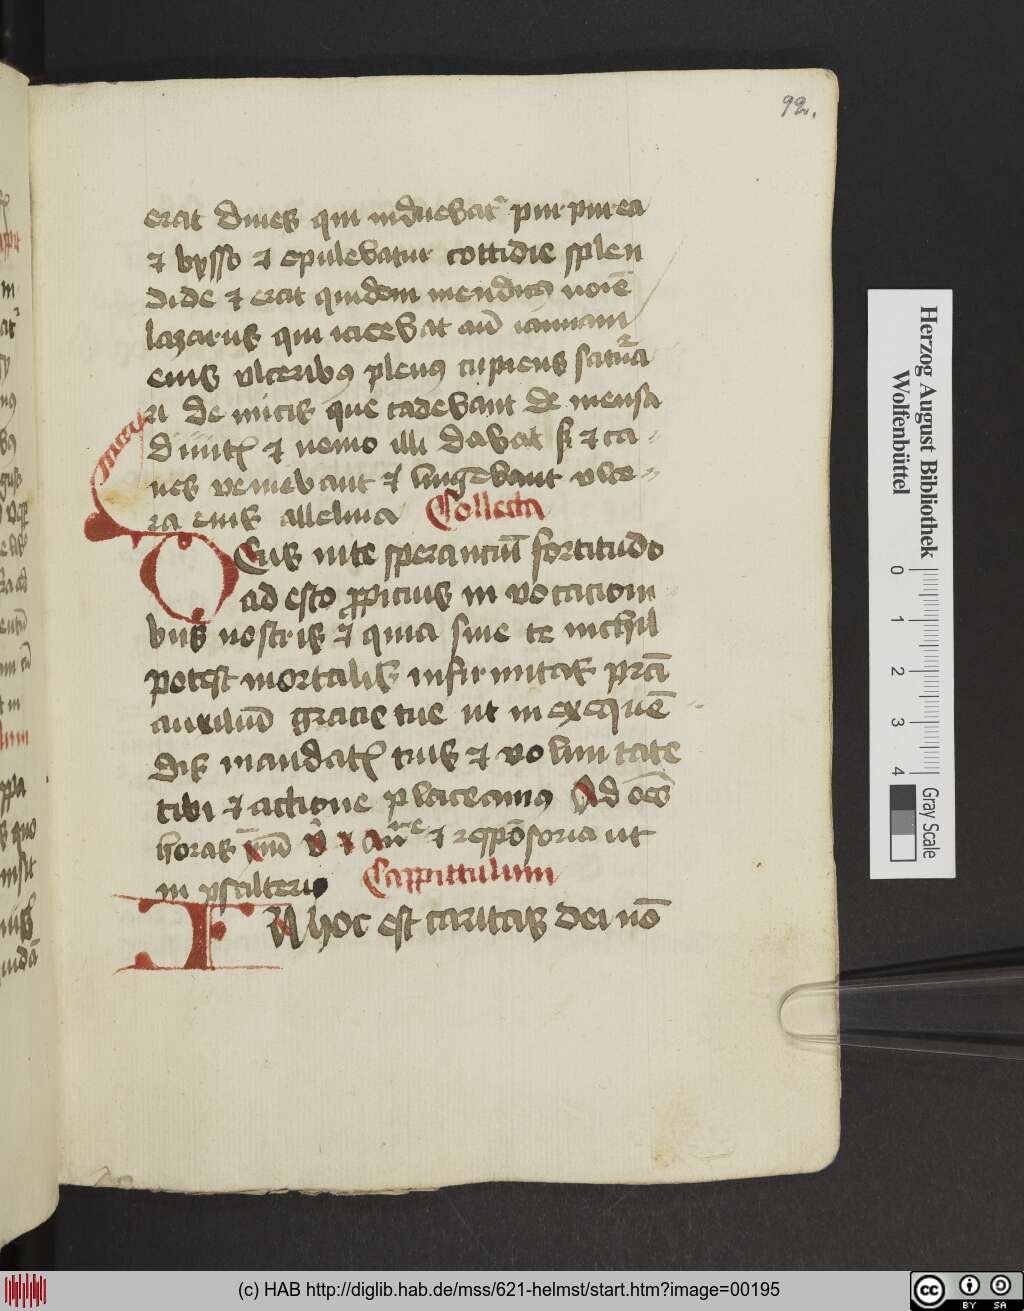 92.
erat diues qui induebat᷑ purpurea
⁊ bysso ⁊ epulebatur cottidie splen
dide ⁊ erat quidem mendicꝰ noīe
lazarus qui iacebat aū ianuam
eius vlceribꝰ plenꝰ cupiens saturᷓa
ri de micis que cadebant de mensa
diuitꝭ ⁊ nemo illi dabat sꝫ ⁊ ca
nes veniebant ⁊ lingebant vlce
ra eius alleluia Collecta
Deus inte sperancīu fortitudo
ad esto ꝓpicius in vocacioni
bus nostris ⁊ quia sine te nichil
potest mortalis infirmitas pᷓta
auxiliū gracie tue ut in exequē
dis mandatꝭ tuis ⁊ voluntate
tibi ⁊ actione placeamꝰ Ad oēs
horas ⁊ respōsoria ut
in psalterio Cappittulum
IN hoc est caritas dei nō
Herzog August Bibliothek
Wolfenbüttel
0 1 2 3 4
Gray Scale
(c) HAB http://diglib.hab.de/mss/621-helmst/start.htm?image=00195
cc BY SA